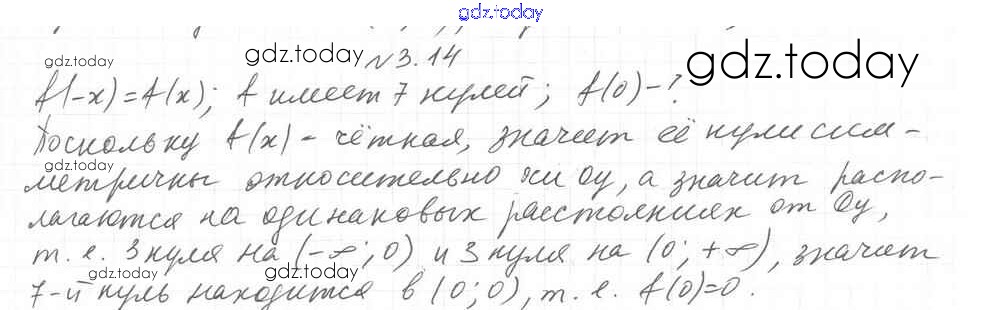 gdz.today
gdz.today gdz.today №3.14 gdz.today
f(-x)=f(x); f имеет 7 нулей; f(0)-?
Поскольку f(x) - чётная, значит её нули сим-
gdz.today
метричны относительно оси Oy, а значит распо-
лагаются на одинаковых расстояниях от Oy,
т.е. 3 нуля на (-∞; 0) и 3 нуля на (0; +∞), значит
gdz.today gdz.today gdz.today
7-й нуль находится в (0; 0), т.е. f(0)=0.